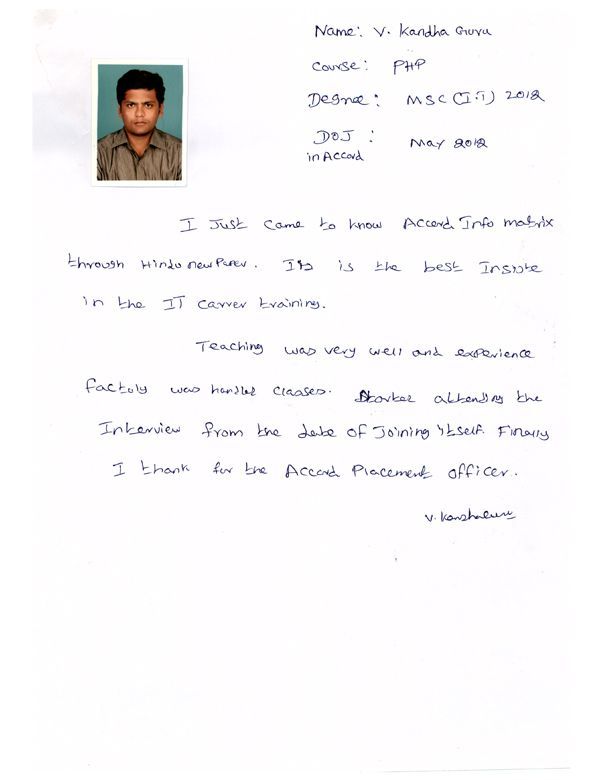 Name: V. Kandha Guru
Course: PHP
Degree: MSC (I.T) 2012
DOJ : May 2012
in Accord
I Just came to know Accord Info matrix
through Hindu newPaper. Its is the best Insitute
in the IT Carrer training.
Teaching was very well and experience
factuly was handled classes. Started attending the
Interview from the date of Joining itself. Finally
I thank for the Accord Placement officer.
V. Kandhaguru